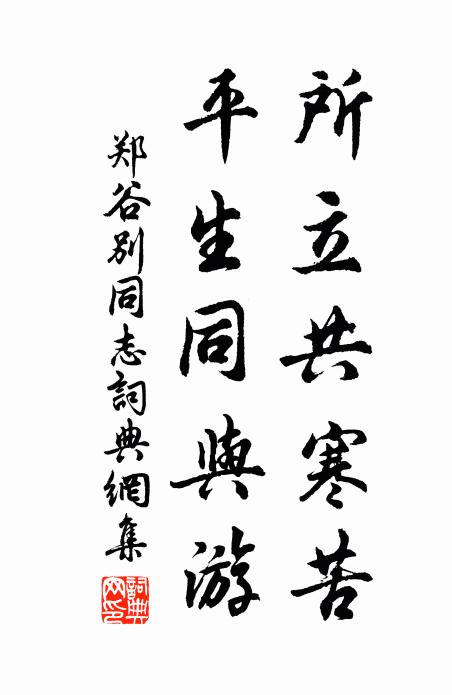 所立共寒苦
平生同與游
郑谷别同志詞典網集
詞典網印